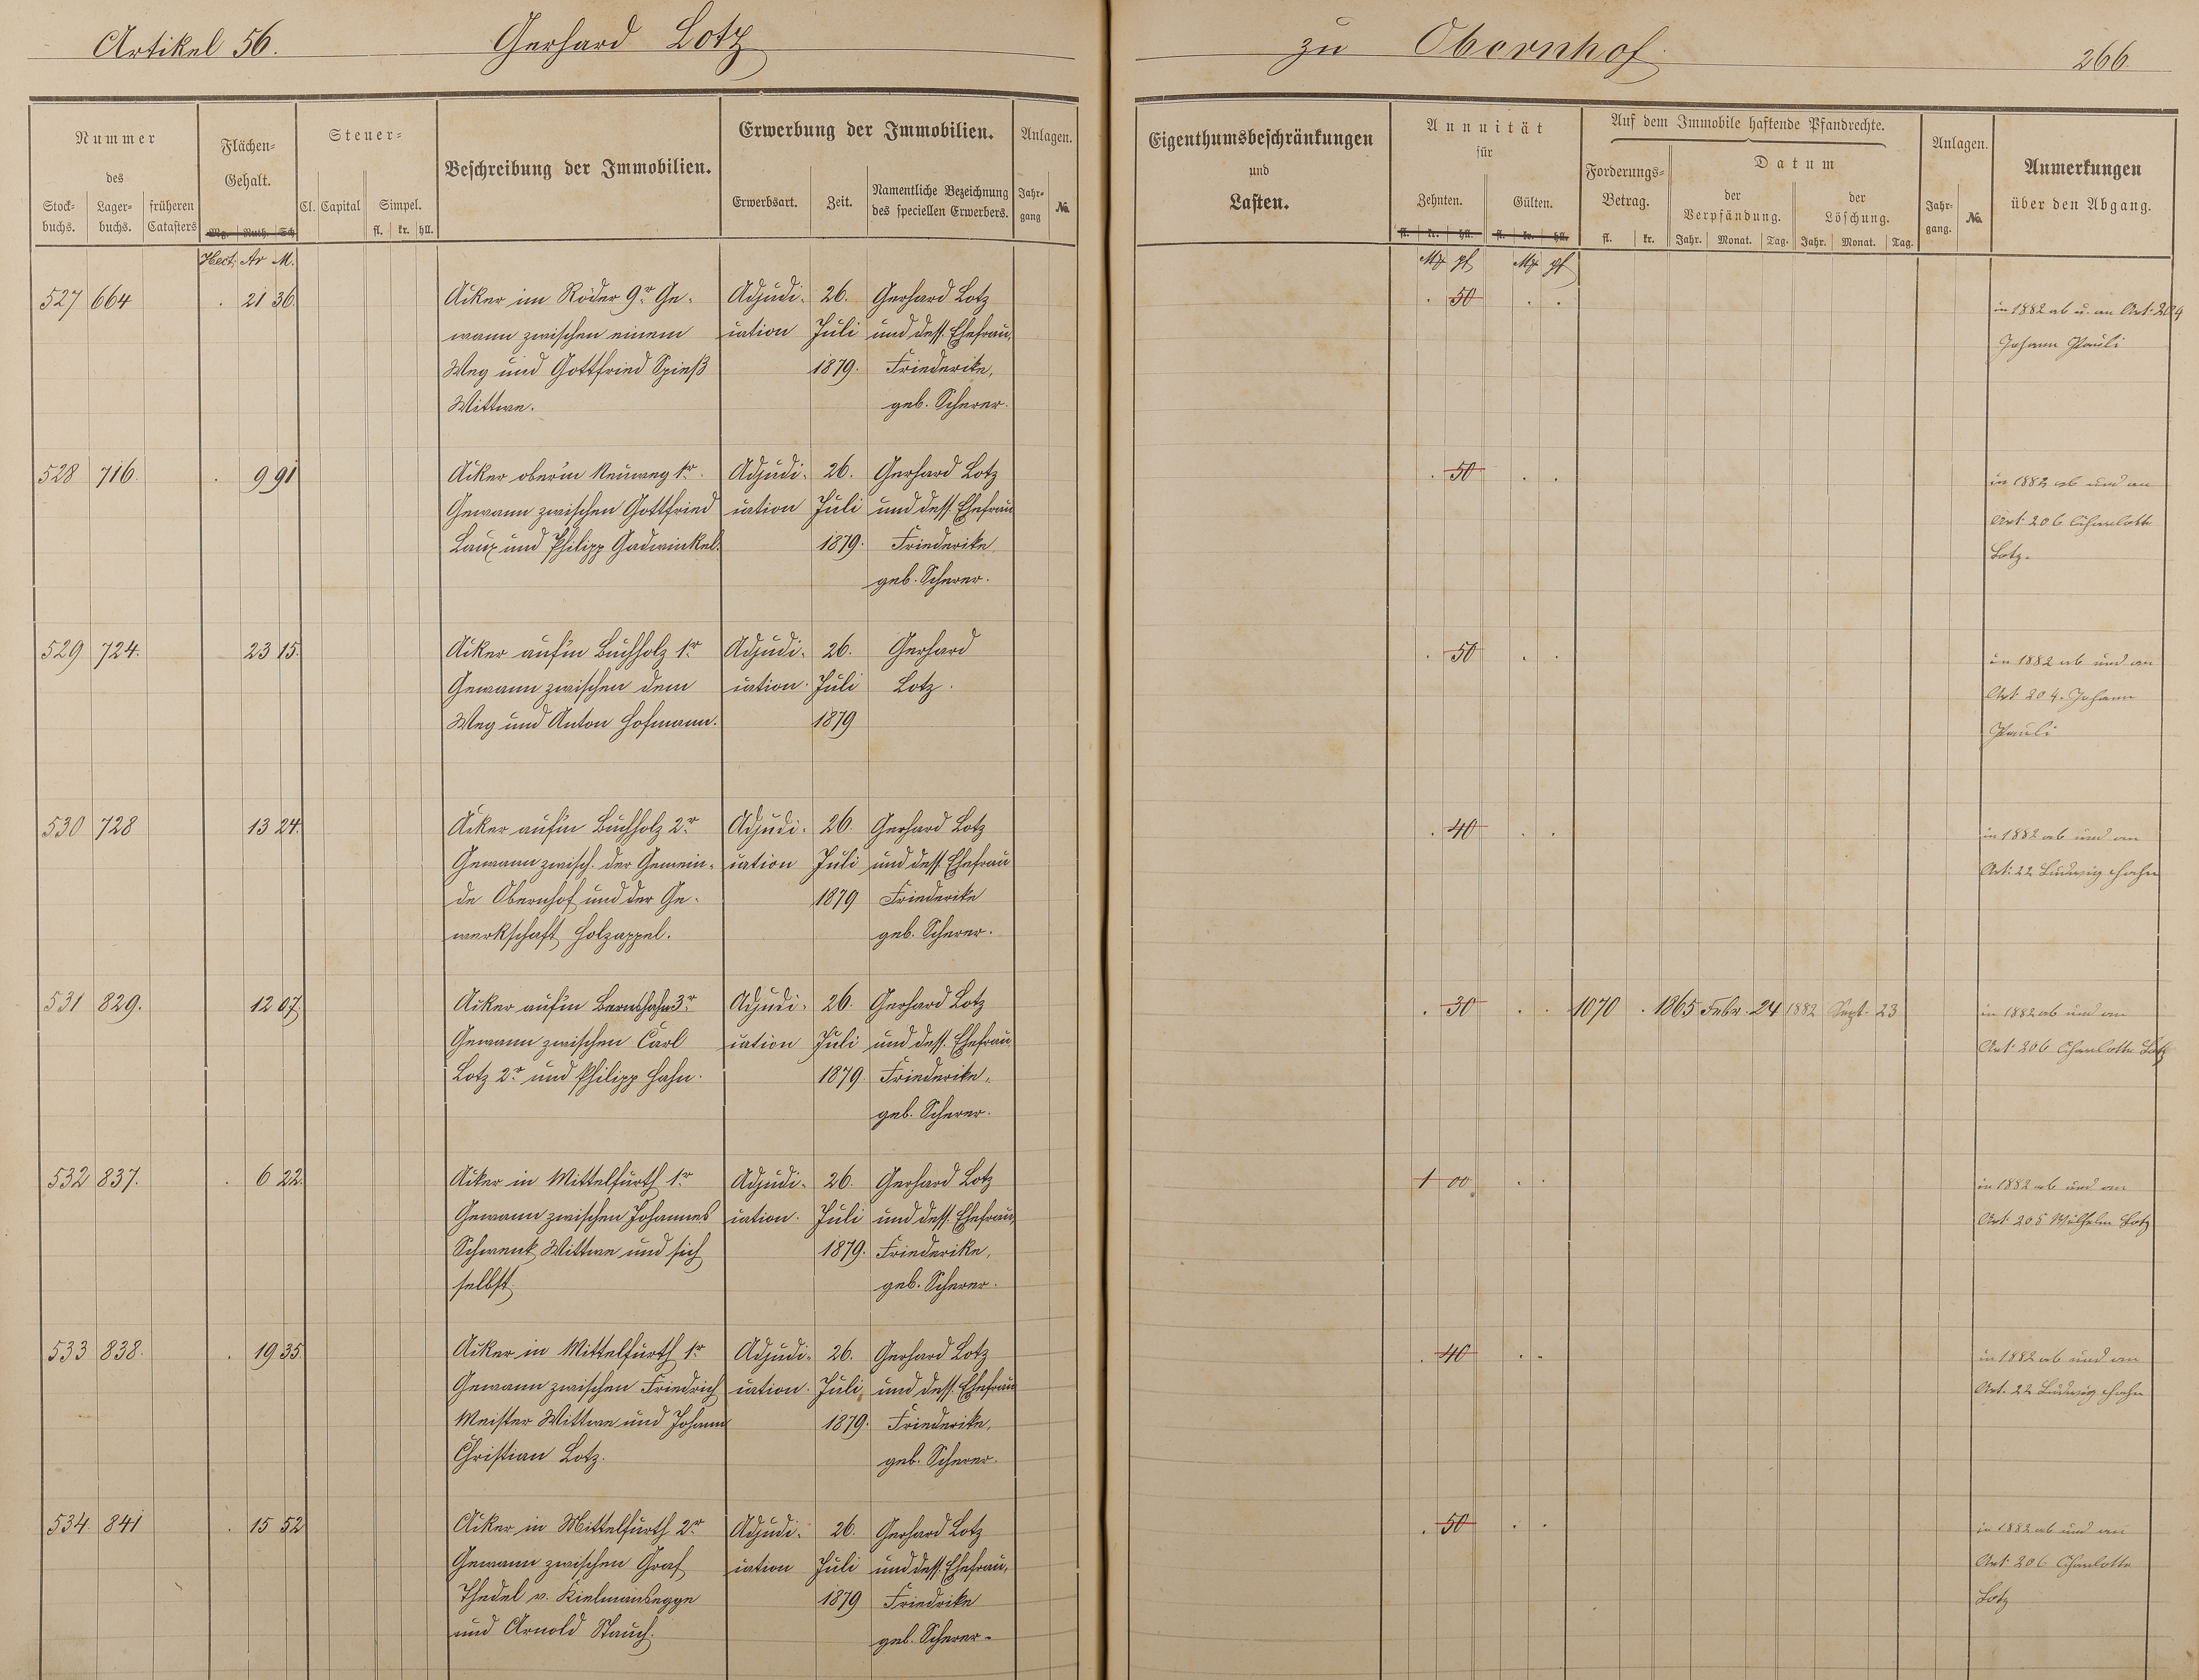 Artikel 56.
Gerhard Lotz
zu Obernhof
266
Nummer
des
Stock-
buchs.
Lager-
buchs.
früheren
Catasters
Flächen-
Gehalt.
Mg. Ruth. Sch
Steuer-
Cl. Capital Simpel.
fl. kr. hll.
Beschreibung der Immobilien.
Erwerbung der Immobilien.
Erwerbsart.
Zeit.
Namentliche Bezeichnung
des speciellen Erwerbers.
Anlagen.
Jahr-
gang
No.
Eigenthumsbeschränkungen
und
Lasten.
Annuität
für
Zehnten. Gülten.
fl. kr. hll. fl. kr. hll.
Auf dem Immobile haftende Pfandrechte.
Forderungs-
Betrag.
fl. kr.
Datum
der
Verpfändung.
der
Löschung.
Jahr. Monat. Tag. Jahr. Monat. Tag.
Anlagen.
Jahr-
gang.
No.
Anmerkungen
über den Abgang.
Hect. Ar M.
Mk pf Mk pf
527 664 . 21 36 Acker im Röder 9r Ge- Adjudi- 26. Gerhard Lotz . 50 . . in 1882 ab u. an Art. 204
wann zwischen einem cation Juli und dess. Ehefrau, Johann Pauli
Weg und Gottfried Spieß 1879. Friederike,
Wittwe. geb. Scherer.
528 716. . 9 91 Acker ober'm Neuweg 1r Adjudi- 26. Gerhard Lotz . 50 . . in 1882 ab und an
Gewann zwischen Gottfried cation Juli und dess. Ehefrau Art. 206 Charlotte
Laux und Philipp Gadwinkel. 1879. Friederike Lotz.
geb. Scherer.
529 724. 23 15. Acker auf'm Buchholz 1r Adjudi- 26. Gerhard . 50 . . in 1882 ab und an
Gewann zwischen dem cation. Juli Lotz. Art. 204. Johann
Weg und Anton Hofmann. 1879 Pauli
530 728 13 24. Acker auf'm Buchholz 2r Adjudi- 26. Gerhard Lotz . 40 . . in 1882 ab und an
Gewann zwisch. der Gemein- cation Juli und dess. Ehefrau Art. 22 Ludwig Hahn
de Obernhof und der Ge- 1879 Friederike
werkschaft Holzappel. geb. Scherer.
531 829. 12 07. Acker auf'm Bernshahn 3r Adjudi- 26. Gerhard Lotz . 30 . . 1070 . 1865 Febr. 24 1882 Sept. 23 in 1882 ab und an
Gewann zwischen Carl cation Juli und dess. Ehefrau Art. 206 Charlotte Lotz
Lotz 2r und Philipp Hahn. 1879. Friederike,
geb. Scherer.
532 837. . 6 22. Acker in Mittelfurth 1r Adjudi- 26. Gerhard Lotz 1 00 . . in 1882 ab und an
Gewann zwischen Johannes cation. Juli und dess. Ehefrau, Art. 205 Wilhelm Lotz
Schwenk Wittwe und sich 1879. Friederike,
selbst. geb. Scherer.
533 838. . 19 35. Acker in Mittelfurth 1r Adjudi- 26. Gerhard Lotz . 40 . . in 1882 ab und an
Gewann zwischen Friedrich cation. Juli und dess. Ehefrau Art. 22 Ludwig Hahn
Meister Wittwe und Johann 1879. Friederike,
Christian Lotz. geb. Scherer.
534. 841 . 15 52 Acker in Mittelfurth 2r Adjudi- 26. Gerhard Lotz . 50 . . in 1882 ab und an
Gewann zwischen Graf cation Juli und dess. Ehefrau, Art. 206 Charlotte
Thedel v. Kielmansegge 1879 Friedrike Lotz
und Arnold Stauch. geb. Scherer.